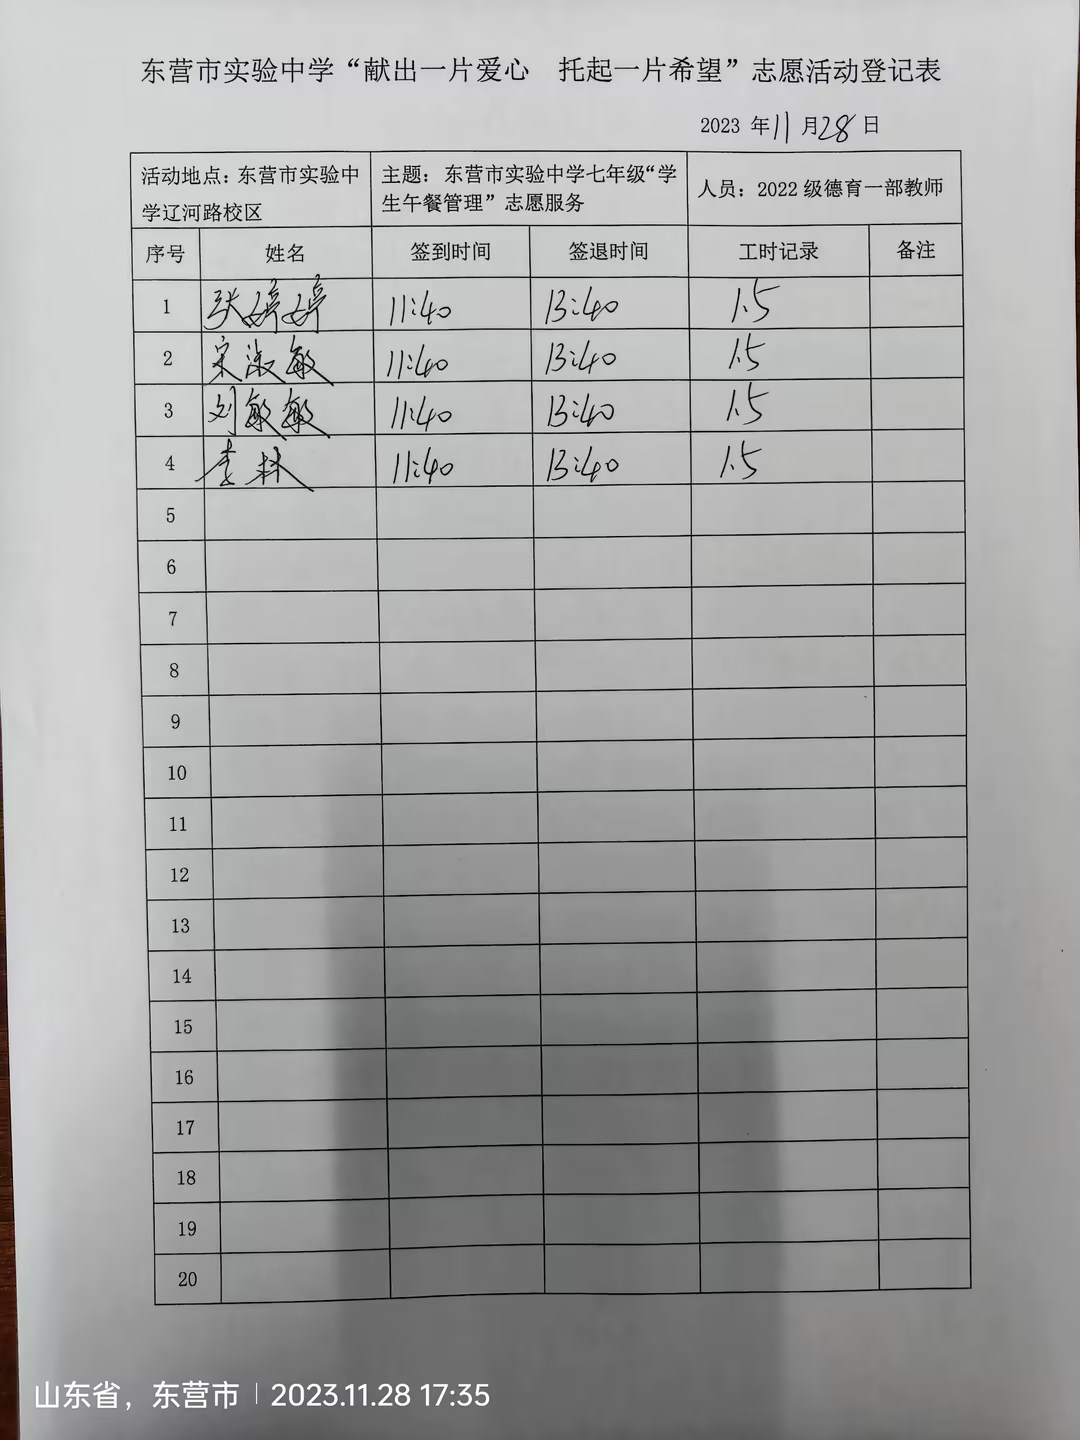 东营市实验中学“献出一片爱心　托起一片希望”志愿活动登记表
2023 年11月28日
活动地点：东营市实验中学辽河路校区 主题：东营市实验中学七年级“学生午餐管理”志愿服务 人员：2022 级德育一部教师
序号 姓名 签到时间 签退时间 工时记录 备注
1 张婷婷 11:40 13:40 1.5
2 宋淑敏 11:40 13:40 1.5
3 刘敏敏 11:40 13:40 1.5
4 李林 11:40 13:40 1.5
5
6
7
8
9
10
11
12
13
14
15
16
17
18
19
20
山东省，东营市 | 2023.11.28 17:35